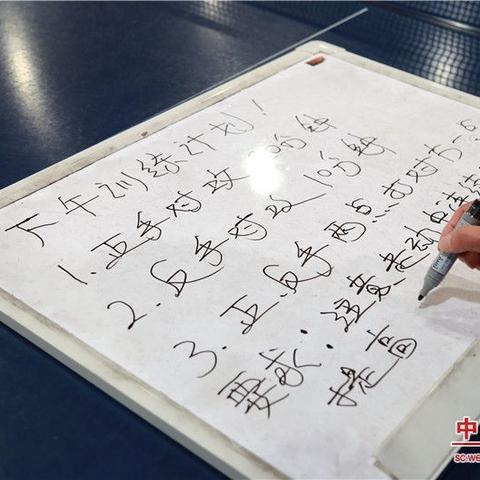 下午训练计划！
1. 正手对攻 10分钟
2. 反手对攻 10分钟
3. 正.反手两点打对方一点
要求：注意走动中连续
提高
中
SC-WE